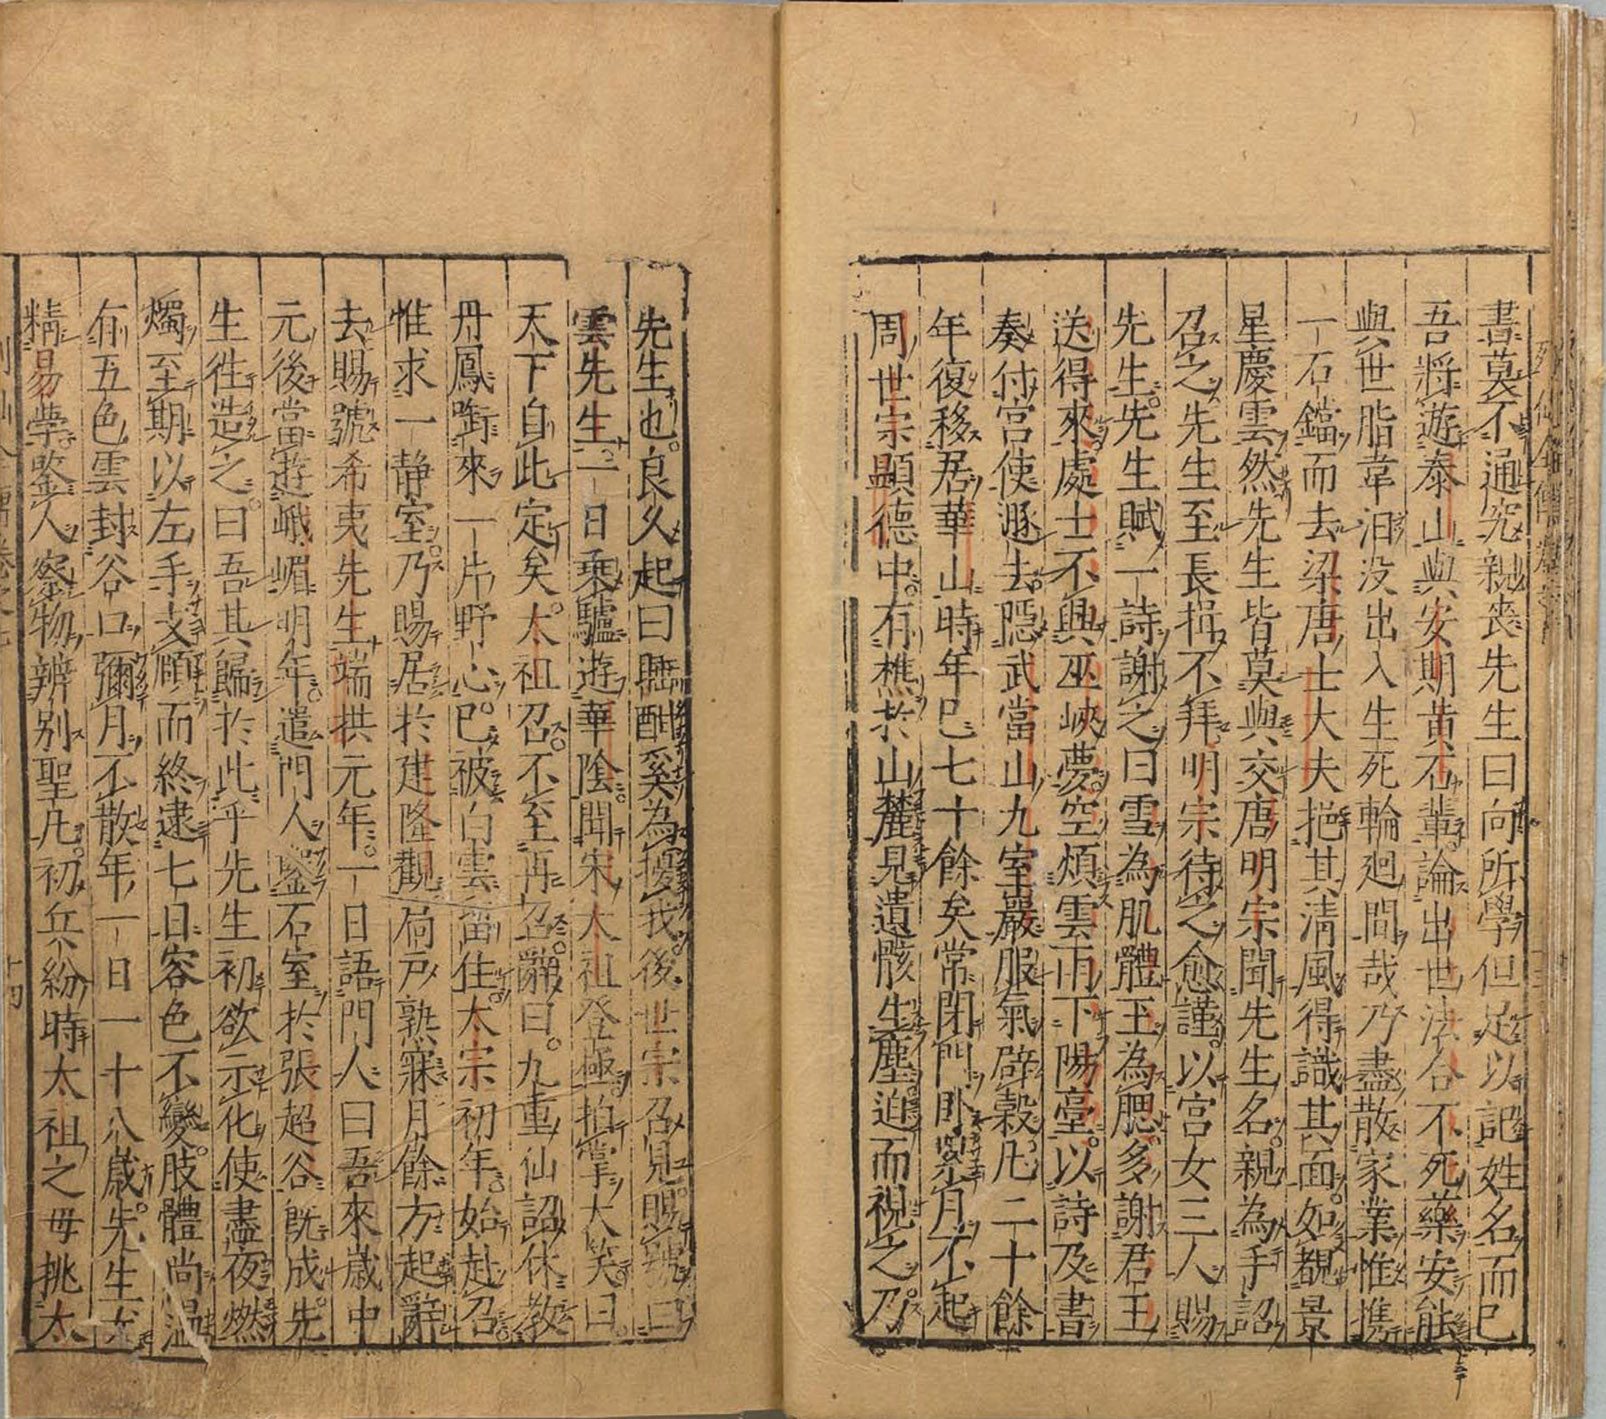 書莫不通究親喪先生曰向所學但足以記姓名而已
吾將遊泰山與安期黃石輩論出世法合不死藥安能
與世脂韋汨没出入生死輪廻間哉乃盡散家業惟携
一石鐺而去梁唐士大夫挹其清風得識其面如覩景
星慶雲然先生皆莫與交唐明宗聞先生名親為手詔
召之先生至長揖不拜明宗待之愈謹以宮女三人賜
先生先生賦一詩謝之曰雪為肌體玉為腮多謝君王
送得來處士不興巫峽夢空煩雲雨下陽臺以詩及書
奏付宮使遁去隱武當山九室巖服氣辟穀凡二十餘
年復移居華山時年已七十餘矣常閉門臥累月不起
周世宗顯德中有樵於山麓見遺骸生塵迫而視之乃
先生也良久起曰睡酣奚為擾我後世宗召見賜號白
雲先生一日乘驢遊華陰聞宋太祖登極拍掌大笑曰
天下自此定矣太祖召不至再召辭曰九重仙詔休教
丹鳳啣來一片野心已被白雲留住太宗初年始赴召
惟求一静室乃賜居於建隆觀扃戸熟寐月餘方起辭
去賜號希夷先生端拱元年一日語門人曰吾來歲中
元後當遊峨嵋明年遣門人鑿石室於張超谷既成先
生徃造之曰吾其歸於此乎先生初欲示化使盡夜燃
燭至期以左手支頤而終逮七日容色不變肢體尚温
有五色雲封谷口彌月不散年一百一十八歲先生尤
精易學鑒人察物辨别聖凡初兵紛時太祖之母挑太